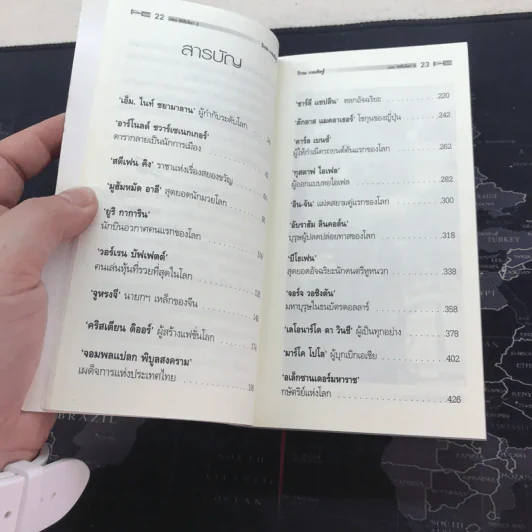 22
สารบัญ
'เอ็ม. ไนท์ ชยามาลาน' ผู้กำกับระดับโลก
'อาร์โนลด์ ชวาร์เซเนกเกอร์'
ดารากลายเป็นนักการเมือง
'สตีเฟน คิง' ราชาแห่งเรื่องสยองขวัญ
'มูฮัมหมัด อาลี' สุดยอดนักมวยโลก
'ยูริ กาการิน'
นักบินอวกาศคนแรกของโลก
'วอร์เรน บัฟเฟตต์'
คนเล่นหุ้นที่รวยที่สุดในโลก
'จูหรงจี' นายกฯ เหล็กของจีน
'คริสเตียน ดิออร์' ผู้สร้างแฟชั่นโลก
'จอมพลแปลก พิบูลสงคราม'
เผด็จการแห่งประเทศไทย
23
'ชาร์ลี แชปลิน' ตลกอัจฉริยะ 220
'ดักลาส แมคอาเธอร์' โชกุนของญี่ปุ่น 242
'คาร์ล เบนซ์'
ผู้ให้กำเนิดรถยนต์คันแรกของโลก 262
'กุสตาฟ ไอเฟล'
ผู้ออกแบบหอไอเฟล
'อิน-จัน' แฝดสยามคู่แรกของโลก 300
'อับราฮัม ลินคอล์น'
บุรุษผู้ปลดปล่อยทาสของโลก 318
'บีโธเฟน'
สุดยอดอัจฉริยะนักดนตรีหูหนวก 338
'จอร์จ วอชิงตัน'
มหาบุรุษในธนบัตรดอลลาร์ 358
'เลโอนาร์โด ดา วินชี' ผู้เป็นทุกอย่าง 378
'มาร์โค โปโล' ผู้บุกเบิกเอเชีย 402
'อเล็กซานเดอร์มหาราช'
กษัตริย์แห่งโลก 426
BRAZIL
TURKEY
SOUTH
ATLANTIC
OCEAN